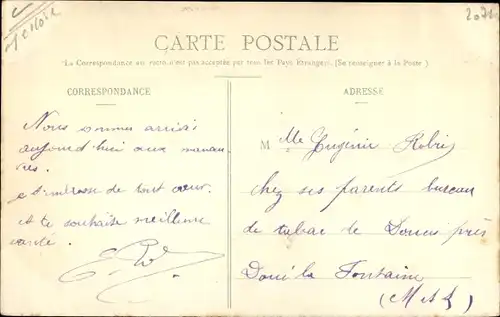 CARTE POSTALE
La Correspondance au recto n'est pas acceptée par tous les Pays Etrangers. (Se renseigner à la Poste)
CORRESPONDANCE
ADRESSE
Nous sommes arrivés
aujourd'hui aux
de tout cœur.
et te souhaite meilleure
santé.
M lle Eugénie
chez ses parents bureau
de tabac de Douces près
Doué la Fontaine
(M & L)